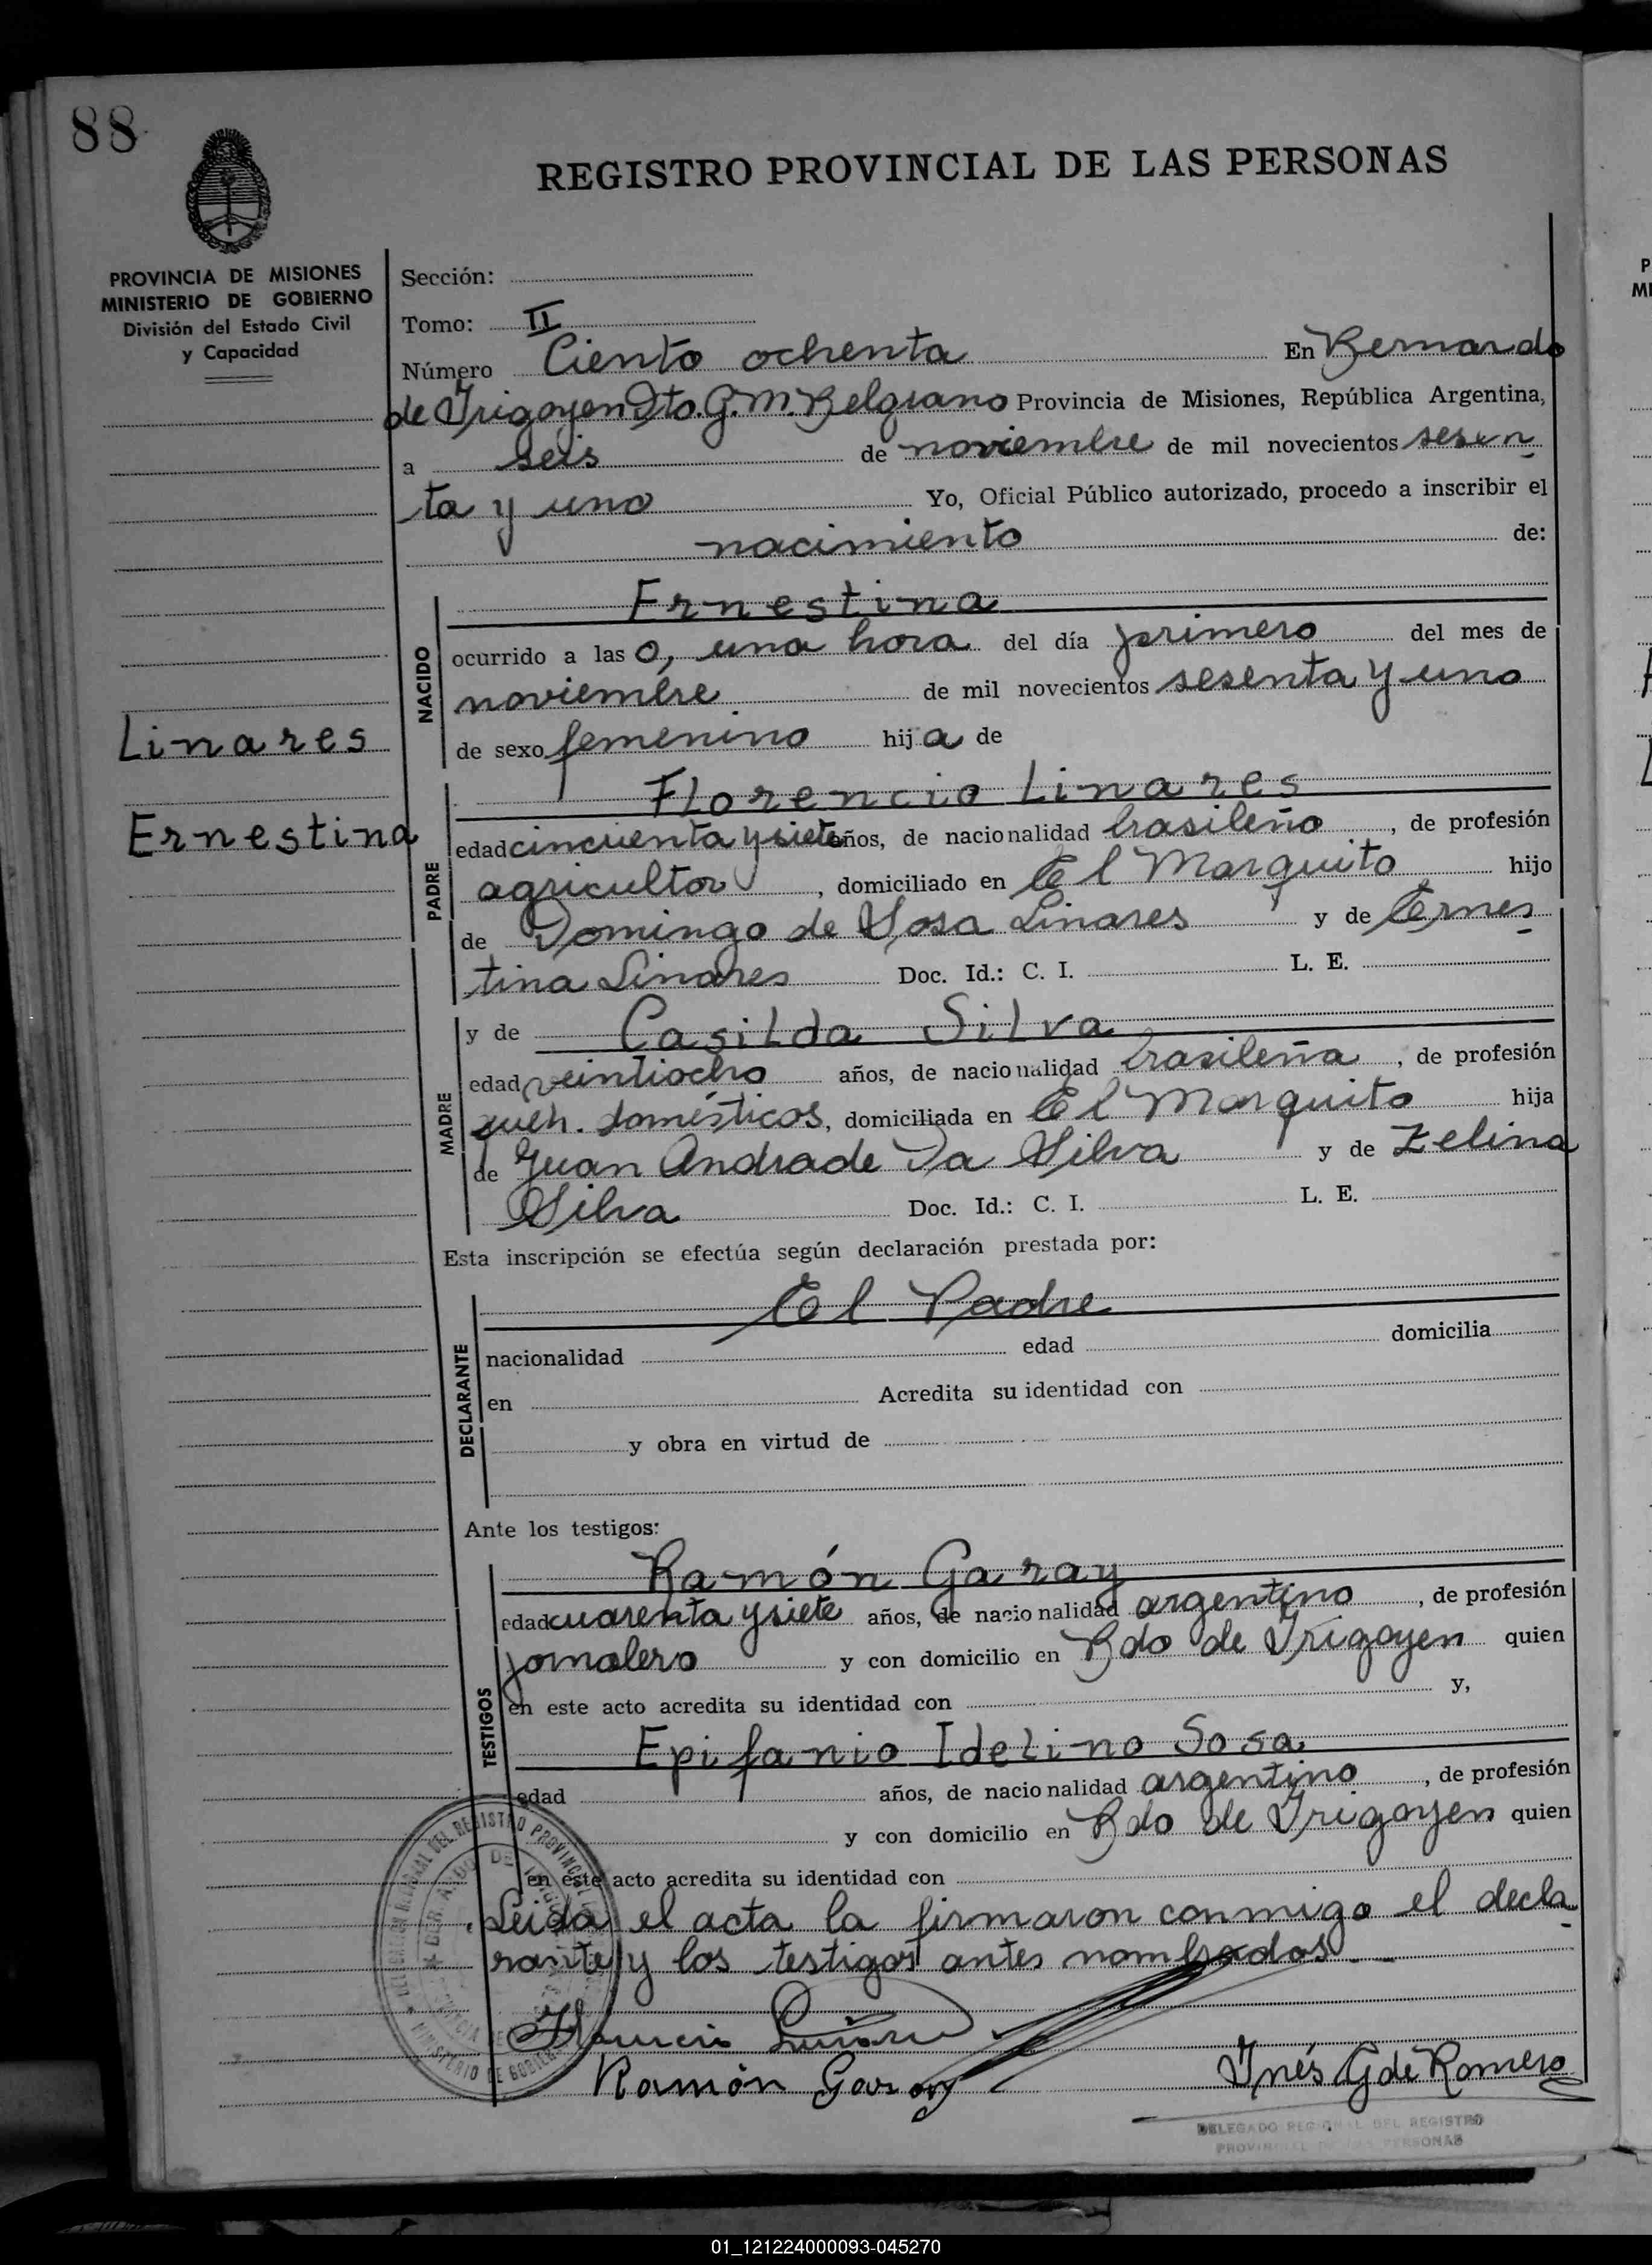 88
REGISTRO PROVINCIAL DE LAS PERSONAS
PROVINCIA DE MISIONES
MINISTERIO DE GOBIERNO
División del Estado Civil
y Capacidad
Linares
Ernestina
Sección:
Tomo: II
Número Ciento ochenta En Bernardo
de Irigoyen Dto. G. M. Belgrano Provincia de Misiones, República Argentina,
a seis de noviembre de mil novecientos sesen
ta y uno Yo, Oficial Público autorizado, procedo a inscribir el
nacimiento de:
NACIDO
Ernestina
ocurrido a las 0, una hora del día primero del mes de
noviembre de mil novecientos sesenta y uno
de sexo femenino hija de
PADRE
Florencio Linares
edad cincuenta y siete años, de nacionalidad brasileño, de profesión
agricultor, domiciliado en El Marquito hijo
de Domingo de Sosa Linares y de Ernes
tina Linares Doc. Id.: C. I. L. E.
MADRE
y de Casilda Silva
edad veintiocho años, de nacionalidad brasileña, de profesión
queh. domésticos, domiciliada en El Marquito hija
de Juan Andrade Da Silva y de Zelina
Silva Doc. Id.: C. I. L. E.
Esta inscripción se efectúa según declaración prestada por:
DECLARANTE
El Padre
nacionalidad edad domicilia
en Acredita su identidad con
y obra en virtud de
Ante los testigos:
TESTIGOS
Ramón Garay
edad cuarenta y siete años, de nacionalidad argentino, de profesión
jornalero y con domicilio en Bdo de Irigoyen quien
en este acto acredita su identidad con y,
Epifanio Idelino Sosa
edad años, de nacionalidad argentino, de profesión
y con domicilio en Bdo de Irigoyen quien
en este acto acredita su identidad con
Leida el acta la firmaron conmigo el decla
rante y los testigos antes nombrados
Ramón Garay
Inés G de Romero
DELEGADO REGIONAL DEL REGISTRO
PROVINCIAL DE LAS PERSONAS
01_121224000093-045270